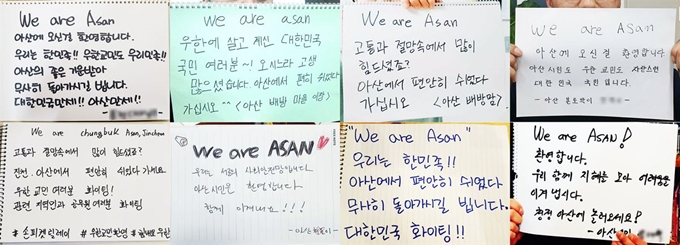 We are Asan
아산에 오신걸 환영합니다.
우리는 한민족!! 우한교민도 우리민족!!
아산의 좋은 기운받아
무사히 돌아가시길 빕니다.
대한민국만세!! 아산만세!!
We are asan
우한에 살고 계신 대한민국
국민 여러분~! 오시느라 고생
많으셨습니다. 아산에서 편히 쉬었다
가십시오^^ <아산 배방 마을 이장>
We are Asan
고통과 절망속에서 많이
힘드셨죠?
아산에서 편안히 쉬였다
가십시요 <아산 배방맘>
We are ASan
아산에 오신걸 환영합니다
아산시민도 우한교민도 자랑스런
대한민국 국민입니다.
- 아산
We are chungbuk Asan, Jincheon
고통과 절망속에서 많이 힘드셨죠?
진천 아산에서 편안히 쉬였다 가세요.
우한 교민 여러분 화이팅!
관련 지역민과 공무원 여러분 화이팅
#손피켓릴레이 #우한교민환영
We are ASAN
우리는 서로의 사회안전망입니다
아산시민은 환영합니다
함께 이겨내요!!!
"We are Asan"
우리는 한민족!!
아산에서 편안히 쉬였다
무사히 돌아가시길 빕니다.
대한민국 화이팅!!
We are ASAN!
환영합니다.
우리 함께 지혜를 모아 어려움을
이겨냅시다.
청정 아산에 놀러오세요!
- 아산